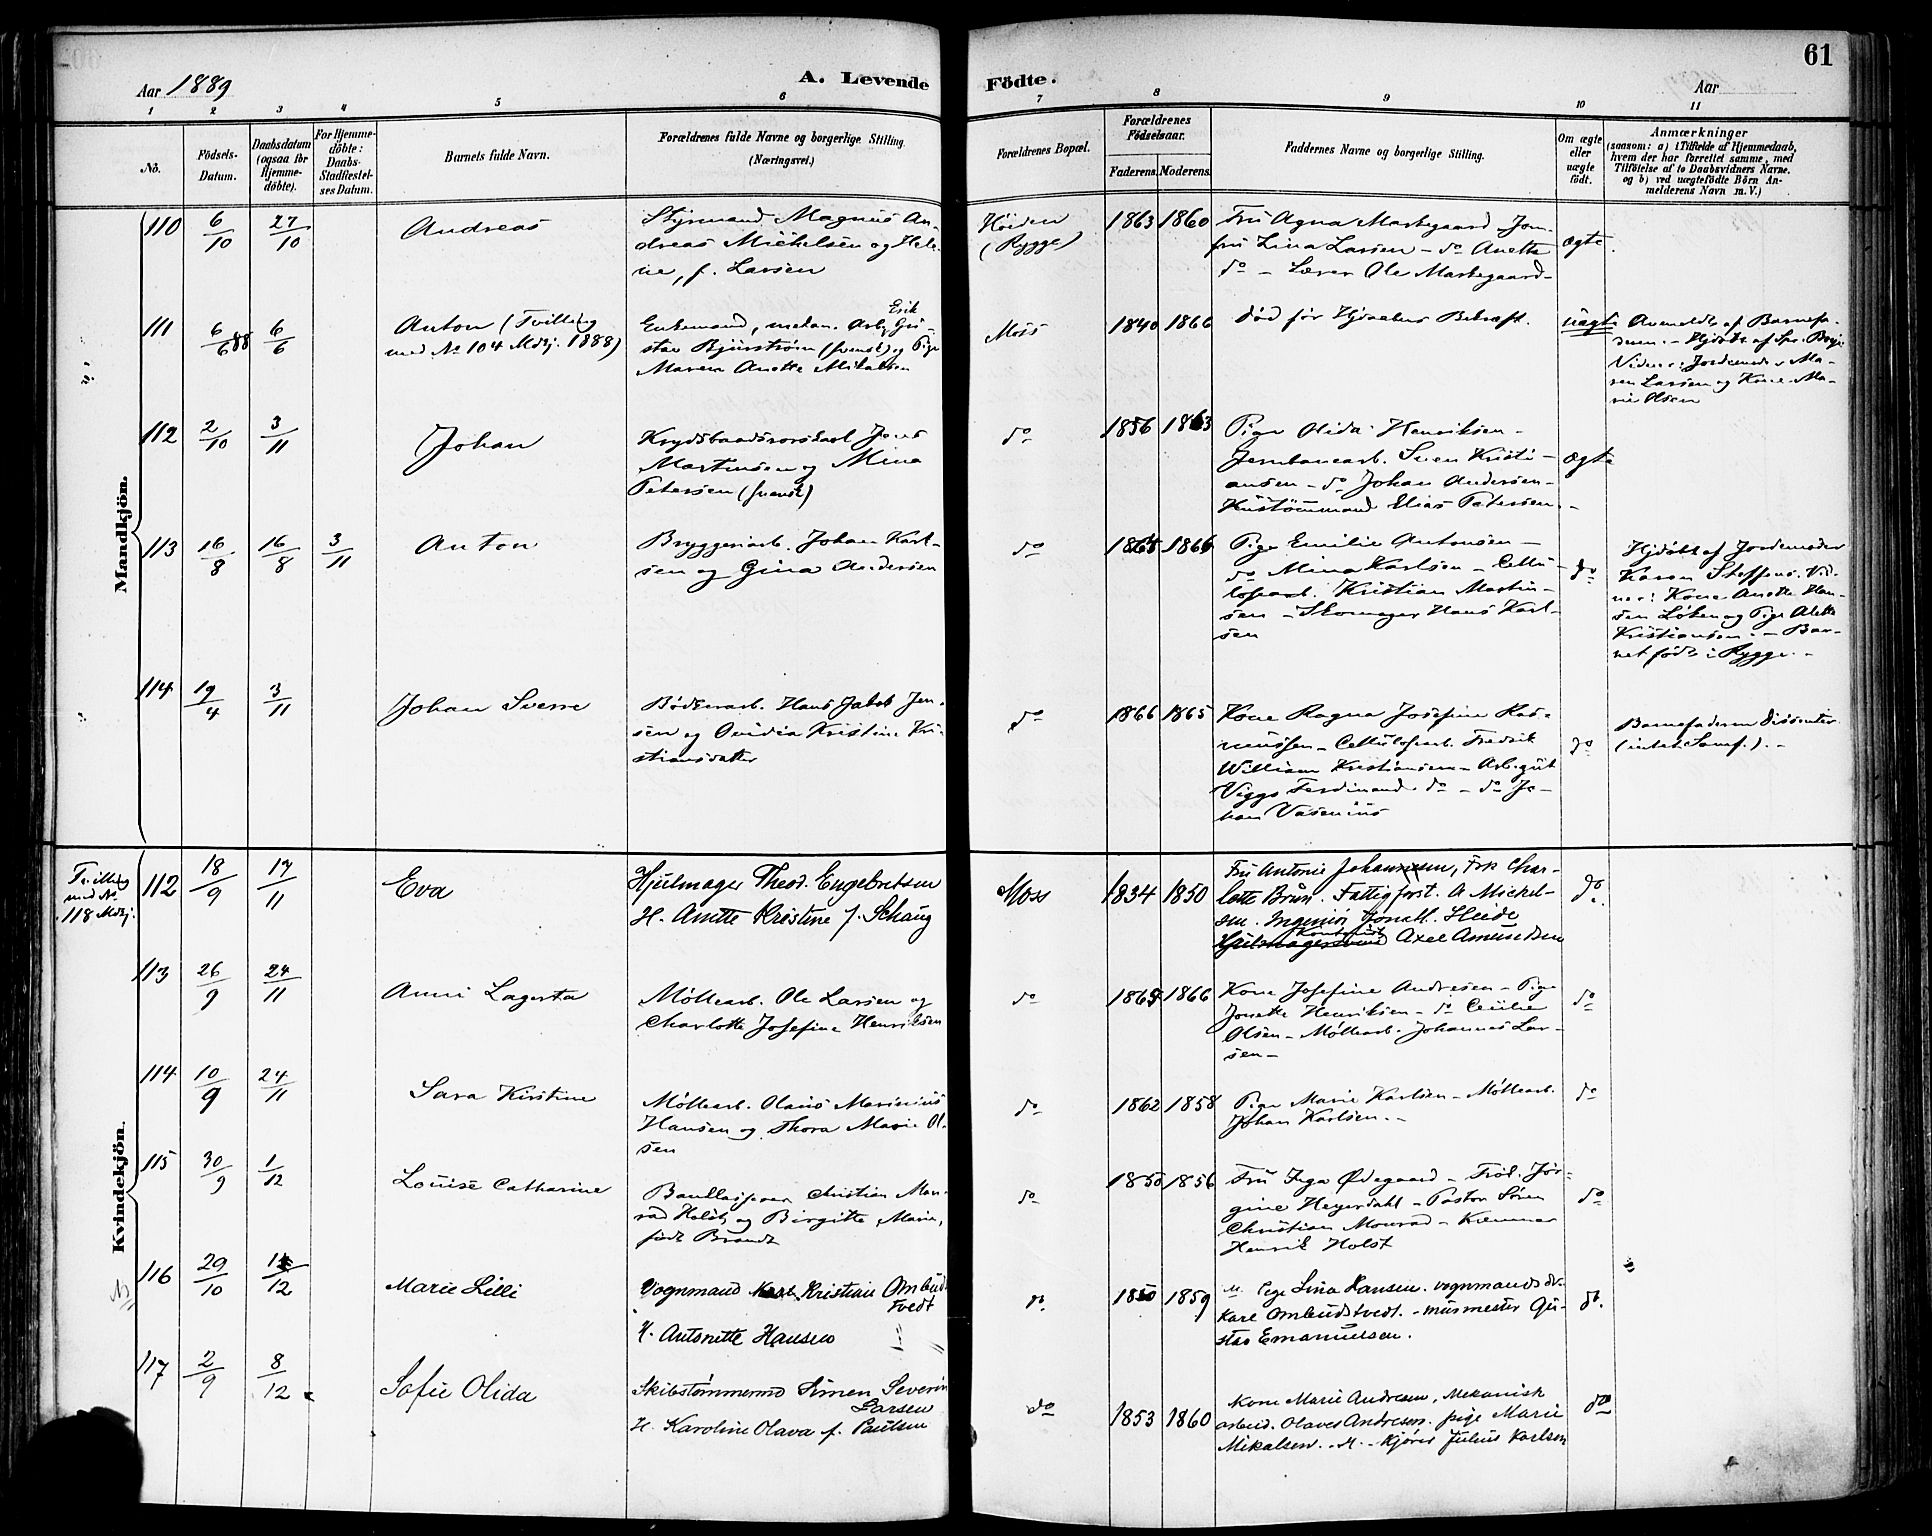 61
Aar 1889
A. Levende
Födte.
Aar
1 2 3 4 5 6 7 8 9 10 11
No.
Födsels-
Datum.
Daabsdatum
(ogsaa for
Hjemme-
döbte).
For Hjemme-
döbte:
Daabs-
Stadfæstel-
ses Datum.
Barnets fulde Navn.
Forældrenes fulde Navne og borgerlige Stilling.
(Næringsvei.)
Forældrenes Bopæl.
Forældrenes
Födselsaar.
Faderens. Moderens.
Faddernes Navne og borgerlige Stilling.
Om ægte
eller
uægte
födt.
Anmærkninger
(saasom: a) i Tilfælde af Hjemmedaab,
hvem der har forrettet samme, med
Tilföielse af to Daabsvidners Navne.
og b) ved uægtefödte Börn An-
melderens Navn m. V.)
Mandkjön.
110 6/10 27/10 Andreas
Styrmand Magnus An-
dreas Mickelsen og Hele-
ne, f. Larsen
Høiden
(Rygge)
1863 1860
Fru Agna Markegaard - Jom-
fru Lina Larsen - do Anette
do - Lærer Ole Markegaard -
ægte.
111 6/6 88 6/6
Anton (Tvilling
med No 104 Mdkj. 1888)
Enkemand, mekan. Arb. Erik Gu-
stav Bjurström (svensk) og Pige
Maren Anette Mikalsen
Moss
1840 1866
Død før Hjdaabens Bekræft.
uægte
Anmeldt af Barnefa-
deren. - Hjdøbt af Spr.
Vidner: Jordemoder Ma-
ren Larsen og Kone Ma-
rie Olsen
112 2/10 3/11 Johan
Jens
Martinsen og Mina
Petersen (svensk)
do
1856 1863
Pige Olida Henriksen -
Jernbanearb. Sven Kristi-
ansen - do Johan Andersen -
Hustømmermand Elias Petersen. -
ægte
113 16/8 16/8 3/11 Anton
Bryggeriarb. Johan Karl-
sen og Gina Andersen
do
1865 1866
Pige Emilie Antonsen -
do Mina Karlsen - Cellu-
losearb. Kristian Martin-
sen - Skomager Hans Karl-
sen
do
Hjdøbt af Jordemoder
Karen Steffens. Vid-
ner: Kone Anette Han-
sen Løken og Pige Alette
Kristiansen. - Bar-
net født i Rygge. -
114 19/4 3/11 Johan Sverre
Bødkerarb. Hans Jakob Jen-
sen og Ovidia Kristine Kri-
stiansdatter
do
1866 1865
Kone Ragna Josefine Ras-
mussen - Cellulosearb. Fredrik
William Kristiansen - Arb.gut
Viggo Ferdinand do - do Jo-
han Vasenius
do
Barnefaderen Dissenter
(intet Samf.). -
Kvindekjön.
Tvilling
med No
118 Mdkj.
112 18/9 17/11 Eva
Hjulmager Theod. Engebretsen
H. Anette Kristine f. Schaug
Moss
1834 1850
Fru Antonie Johannesen, Frk Char-
lotte Brun. Fattigforst. A Mickel-
sen. Ingeniör Jonath. Heide
Hjulmagersvend Kontorist Axel Amundsen
do.
113 26/9 24/11 Anni Lagerta
Møllearb. Ole Larsen og
Charlotte Josefine Henriksen
do
1865 1866
Kone Josefine Andresen - Pige
Jonette Henriksen - do Cecilie
Olsen - Møllearb. Johannes Lar-
sen -
do
114 10/9 24/11 Sara Kirstine
Møllearb. Olaus Marinius
Hansen og Thora Marie Ol-
sen
do
1862 1858
Pige Marie Karlsen - Møllearb.
Johan Karlsen. -
do
115 30/9 1/12 Louise Catharine
Bankkasserer Christian Mon-
rad Holst og Birgitte Marie,
født Brandt
do
1850 1856
Fru Inga Ødegaard - Frøk. Jør-
gine Heyerdahl - Pastor Søren
Christian Monrad - Kæmner
Henrik Holst
do
116 29/10 12/12 Marie Lilli
Vognmand Karl Kristian Ombud-
tvedt
H. Antonette Hansen
do.
1850 1859
M. Pige Lina Hansen. vognmands dr.
Kare Ombudstvedt. - murmester Gu-
stav Emanuelsen.
do.
117 2/9 8/12 Sofie Olida
Skibstømmermd Simen Severin
Larsen
H. Karoline Olava f. Paulsen
do
1853 1860
Kone Marie Andresen, Mekanisk
arbeid. Olaves Andresen. pige Marie
Mikalsen. - M. - Kjører Julius Karlsen
do